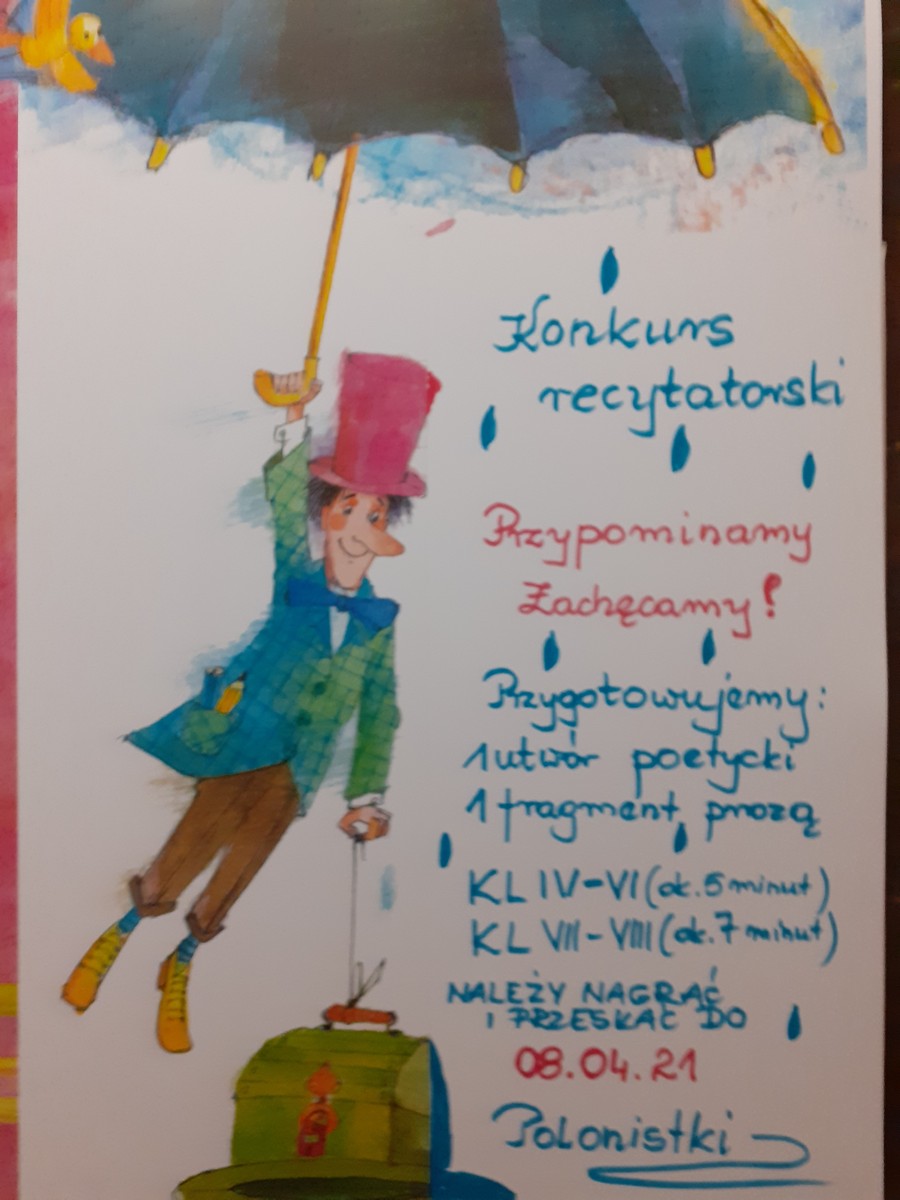 Konkurs
recytatorski
Przypominamy
Zachęcamy!
Przygotowujemy:
1 utwór poetycki
1 fragment prozą
KL IV-VI (ok. 5 minut)
KL VII-VIII (ok. 7 minut)
NALEŻY NAGRAĆ
I PRZESŁAĆ DO
08.04.21
Polonistki